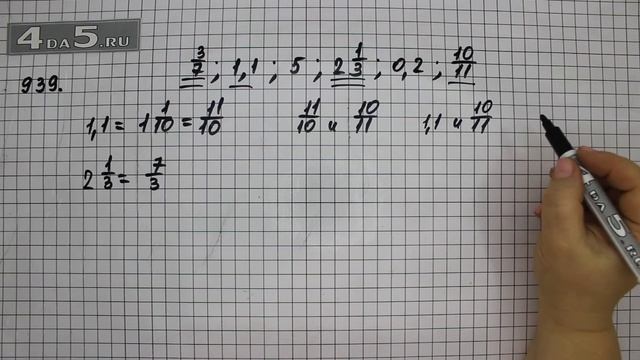 4DA5.RU
939.
3/7 ; 1,1 ; 5 ; 2 1/3 ; 0,2 ; 10/11
1,1 = 1 1/10 = 11/10   11/10 и 10/11   1,1 и 10/11
2 1/3 = 7/3
4 DA 5.RU